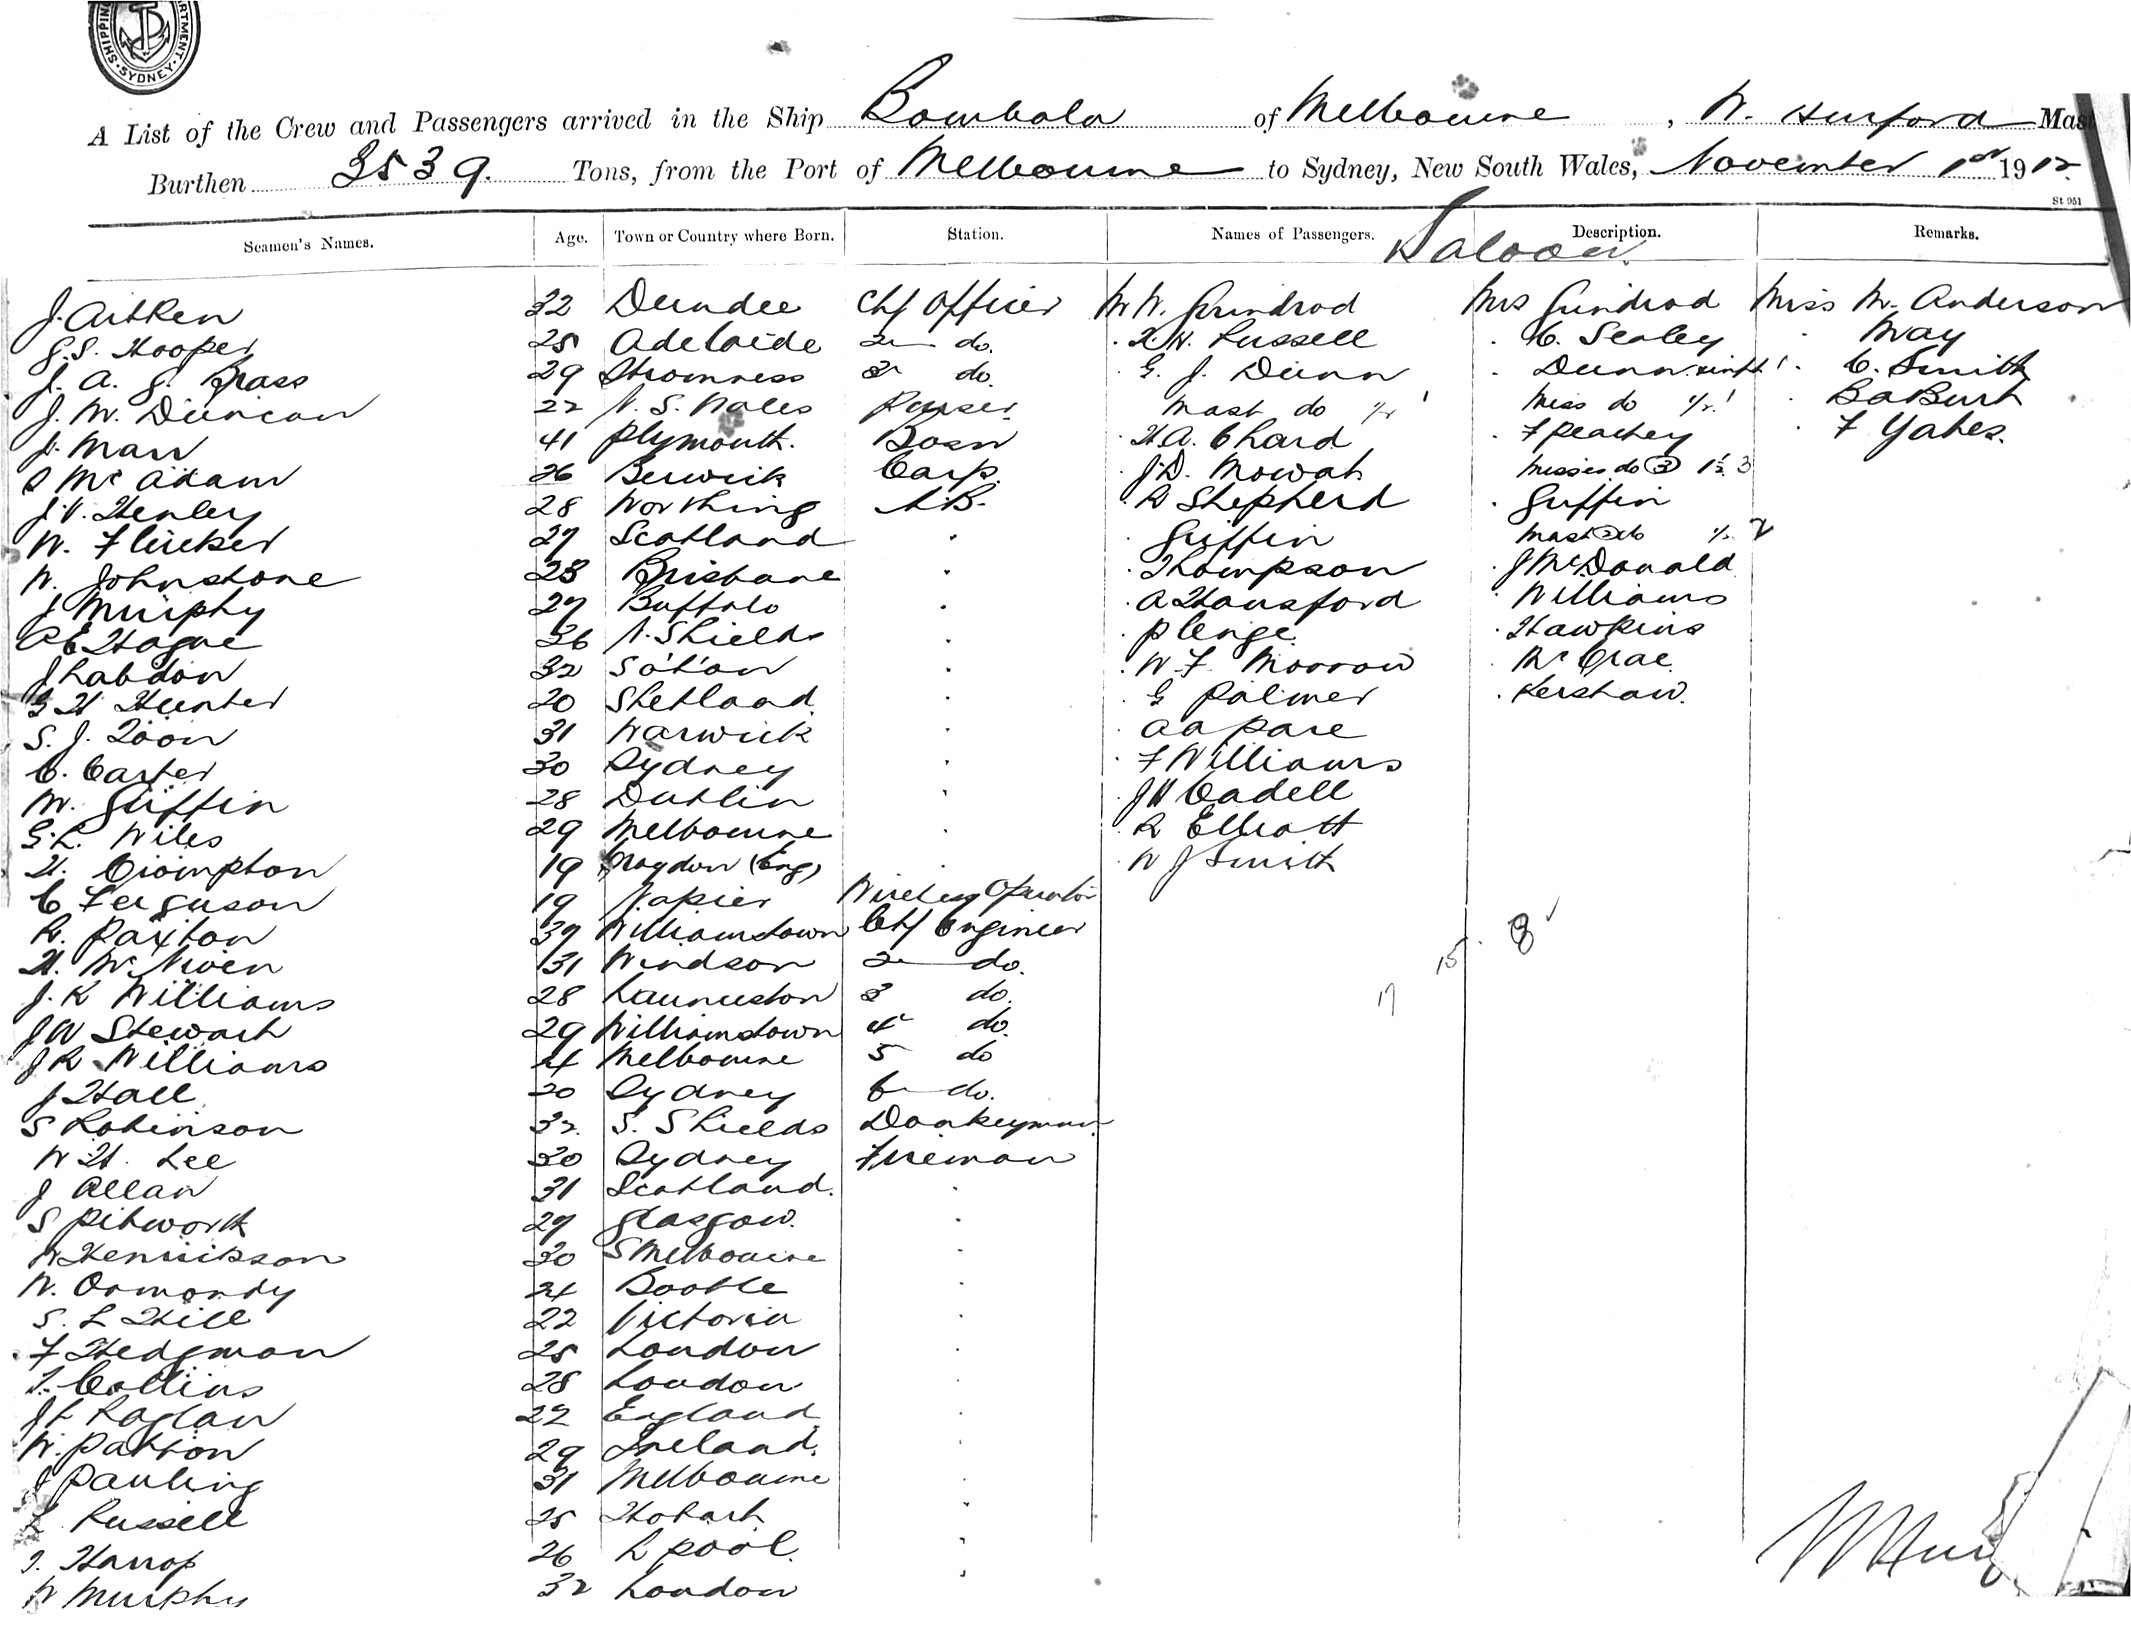 SHIPPING DEPARTMENT SYDNEY
A List of the Crew and Passengers arrived in the Ship Bombala of Melbourne, W. Hurford Mast
Burthen 3539. Tons, from the Port of Melbourne to Sydney, New South Wales, November 1st 1912
St 951
Seamen's Names. Age. Town or Country where Born. Station. Names of Passengers. Description. Remarks.
Saloon.
J. Aitken 32 Dundee Chf Officer Mr W. Grindrod Mrs Grindrod Miss M. Anderson
G. S. Hooper 25 Adelaide 2 do. H. W. Russell C. Sealey May
J. A. G. Brass 29 Stromness 3 do. G. J. Dunn Dunn inft 1 C. Smith
J. M. Duncan 22 N. S. Wales Purser Mast do 1/2 1 Miss do 1/2 1 Burt
J. Marr 41 Plymouth. Bosn H. A. Chard F Peachey F Yates.
McAdam 26 Berwick Carp. J. D. Mowat Misses do (3) 1½ 3
J. V. Henley 28 Worthing A.B. R Shepherd Griffin
W. Flucker 27 Scotland Griffin Mast 2 do 1/2 2
W. Johnstone 28 Brisbane Thompson J McDonald
J Murphy 27 Buffalo A Hansford Williams
A E Hague 36 N. Shields P Clenge Hawkins
J Labdon 32 So'ton W F Morrow McCrae
G H Hunter 20 Shetland G Palmer Kershaw.
S. J. Toon 31 Warwick A A Pare
C. Carter 30 Sydney F Williams
M. Griffin 28 Dublin J H Cadell
G. L. Wiles 29 Melbourne R Elliott
H. Crompton 19 Croydon (Eng) W J Smith
C Ferguson 19 Napier Wireless Operator
R. Paxton 39 Williamstown Chf Engineer
H. McNiven 31 Windsor 2 do.
15. 8
J. K Williams 28 Launceston 3 do.
17
J W Stewart 29 Williamstown 4 do.
J R Williams 24 Melbourne 5 do
J Hall 20 Sydney 6 do.
S Robinson 32 S. Shields Donkeyman
W H. Lee 30 Sydney Fireman
J Allan 31 Scotland.
S Pitworth 29 Glasgow.
Henrikson 30 S Melbourne
W. Ormondy 24 Bootle
S. L Hill 22 Victoria
F Hedgman 25 London
T. Collins 28 London
J L Raglan 22 England
W. Patton 29 Ireland.
J Pauling 31 Melbourne
Russell 25 Hobart
T. Harrop 26 L'pool.
W Murphy 32 London